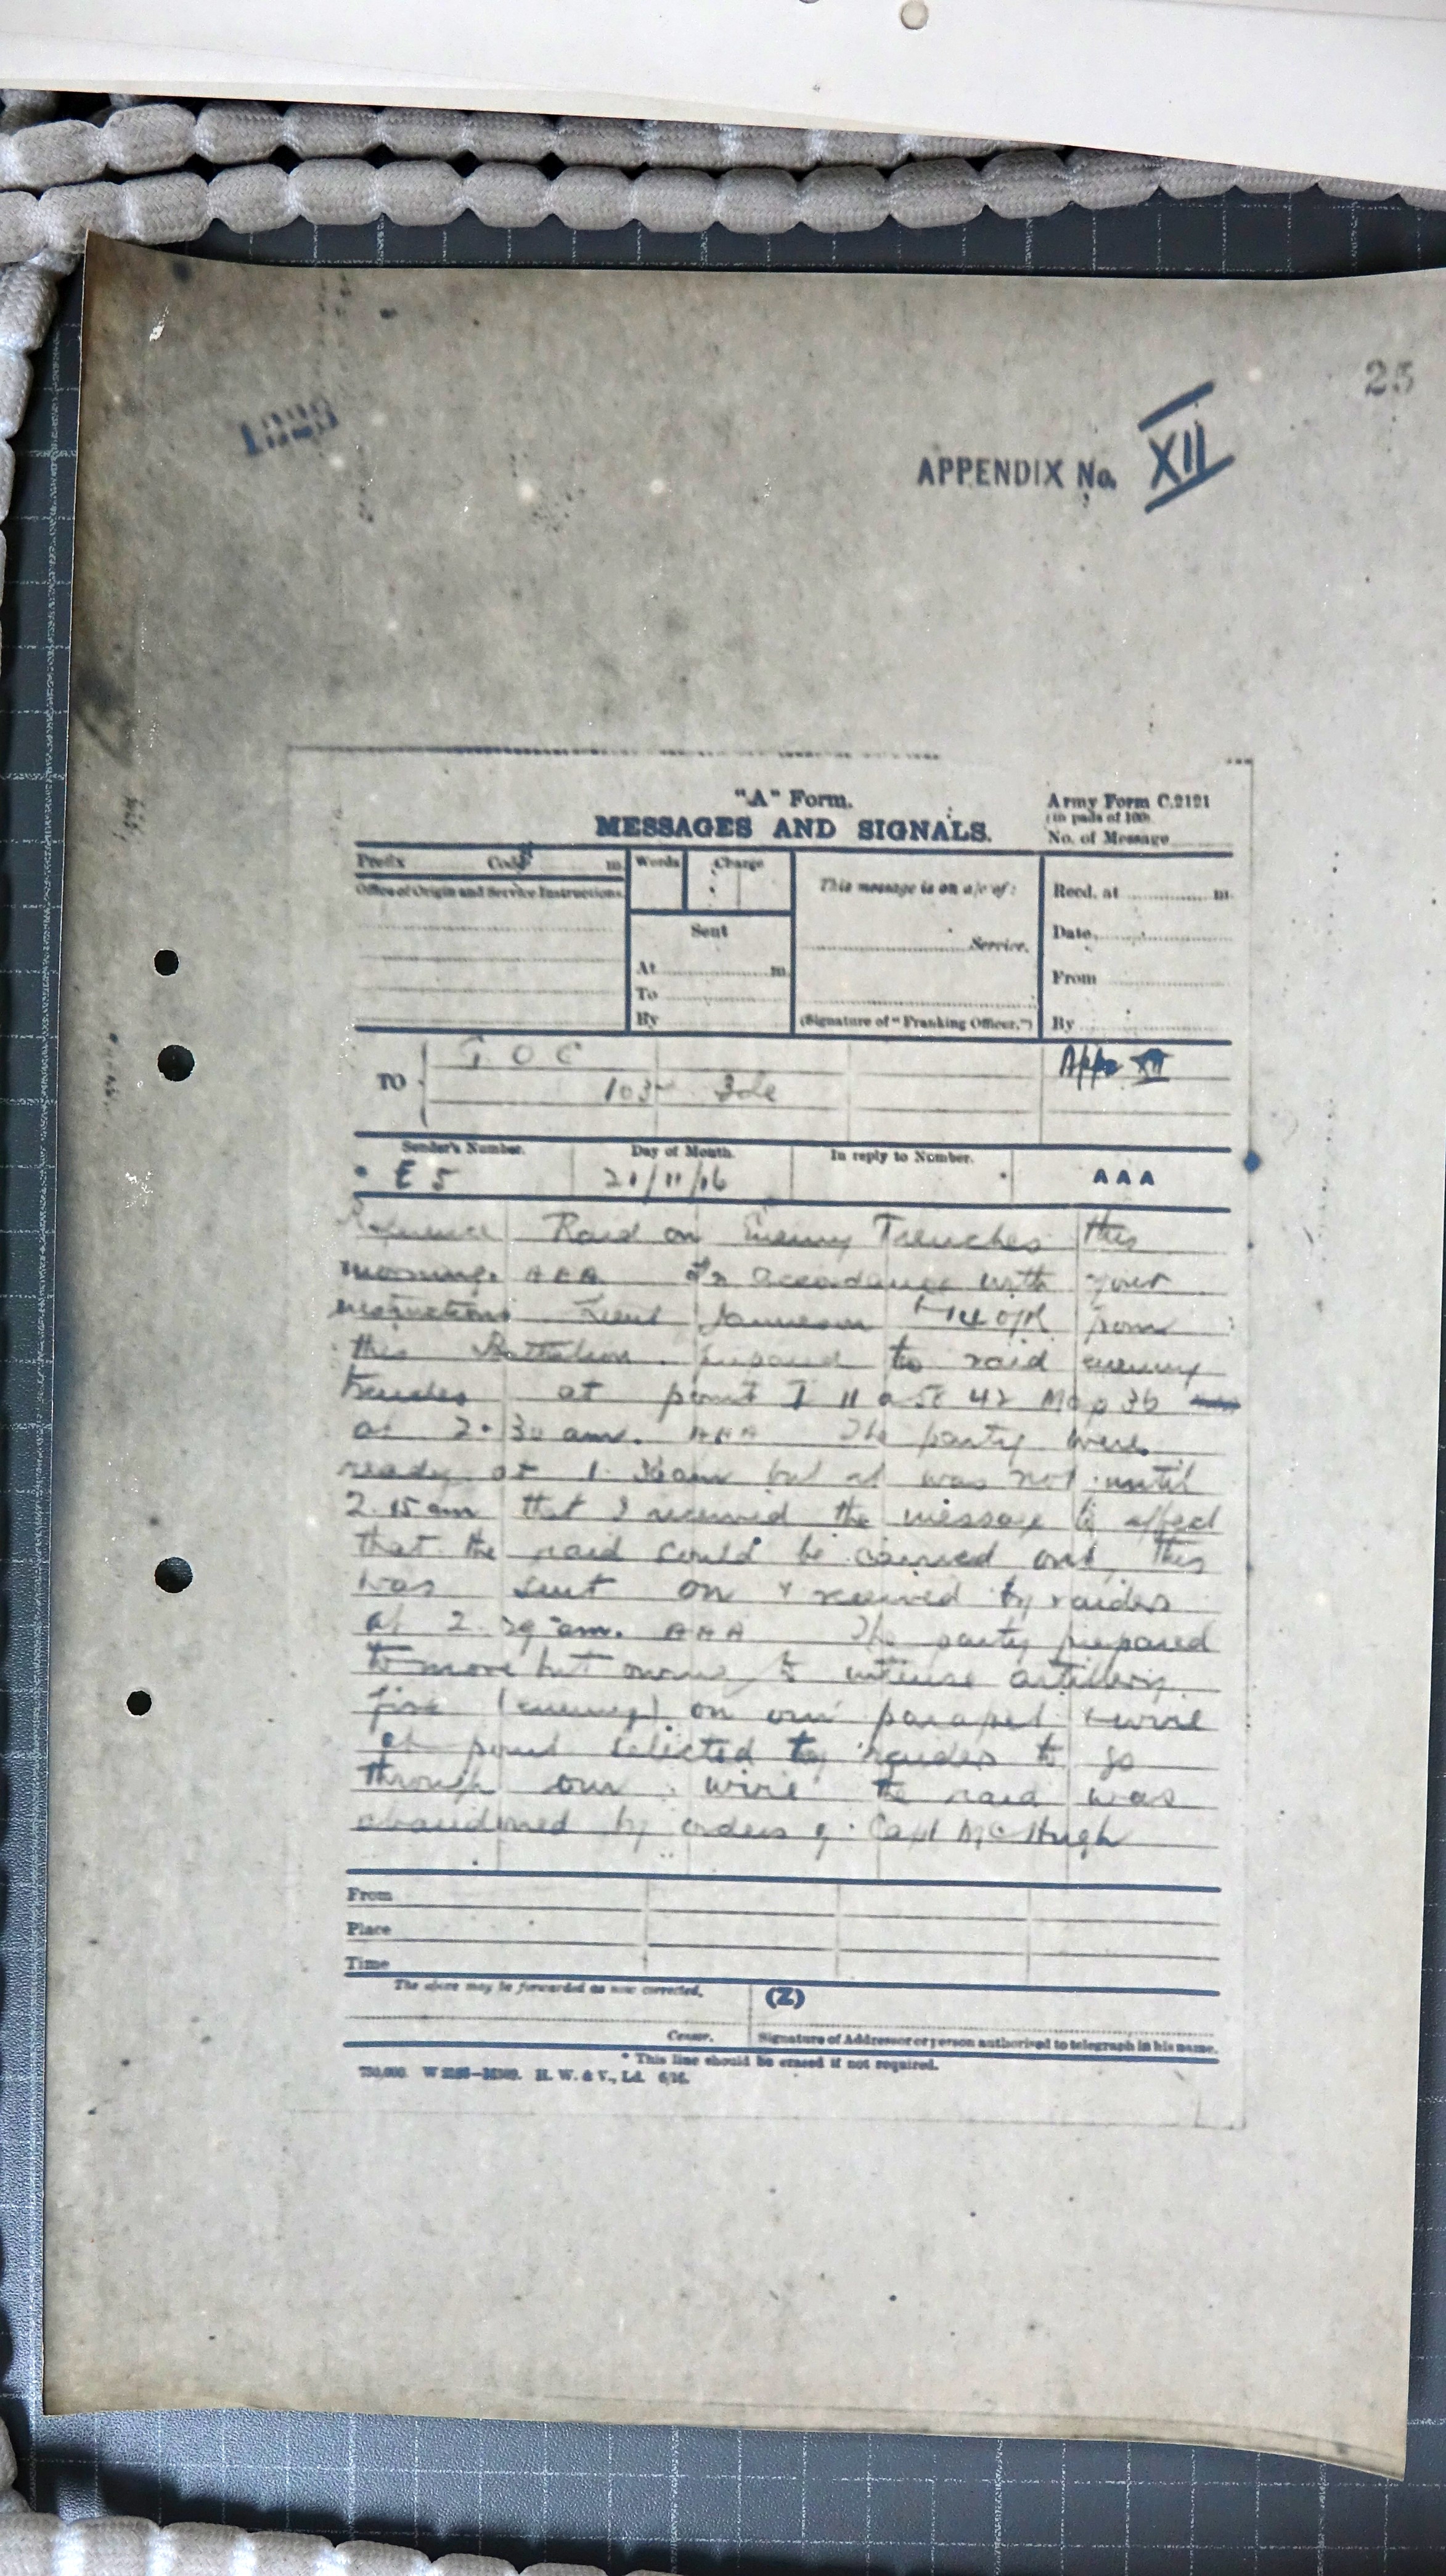 25
APPENDIX No. XII
"A" Form.
Army Form C.2121
(in pads of 100).
MESSAGES AND SIGNALS.
No. of Message
Prefix Code m.
Words Charge
This message is on a/c of:
Recd. at m.
Office of Origin and Service Instructions.
Sent
Date
Service.
At m.
From
To
By
(Signature of "Franking Officer.")
By
TO
G O C
Appx XII
103 Bde
Sender's Number.
Day of Month.
In reply to Number.
* E 5
21/11/16
AAA
Reference Raid on Enemy Trenches this
morning. AAA In accordance with your
instructions Lieut Jameson 14 O/R from
this Battalion to raid enemy
trenches at point I 11 a 42 Map 36
at 2.30 am. AAA The party were
ready at 1.30am but it was not until
2.15am that I received the message to effect
that the raid could be carried out, this
was sent on & received by raiders
at 2.29 am. AAA The party prepared
to move but owing to intense artillery
fire (enemy) on our parapet & wire
at point selected by raiders to go
through our wire the raid was
abandoned by orders of Capt McHugh
From
Place
Time
The above may be forwarded as now corrected.
(Z)
Censor.
Signature of Addressor or person authorised to telegraph in his name.
* This line should be erased if not required.
H. W. & V., Ld. 6/16.